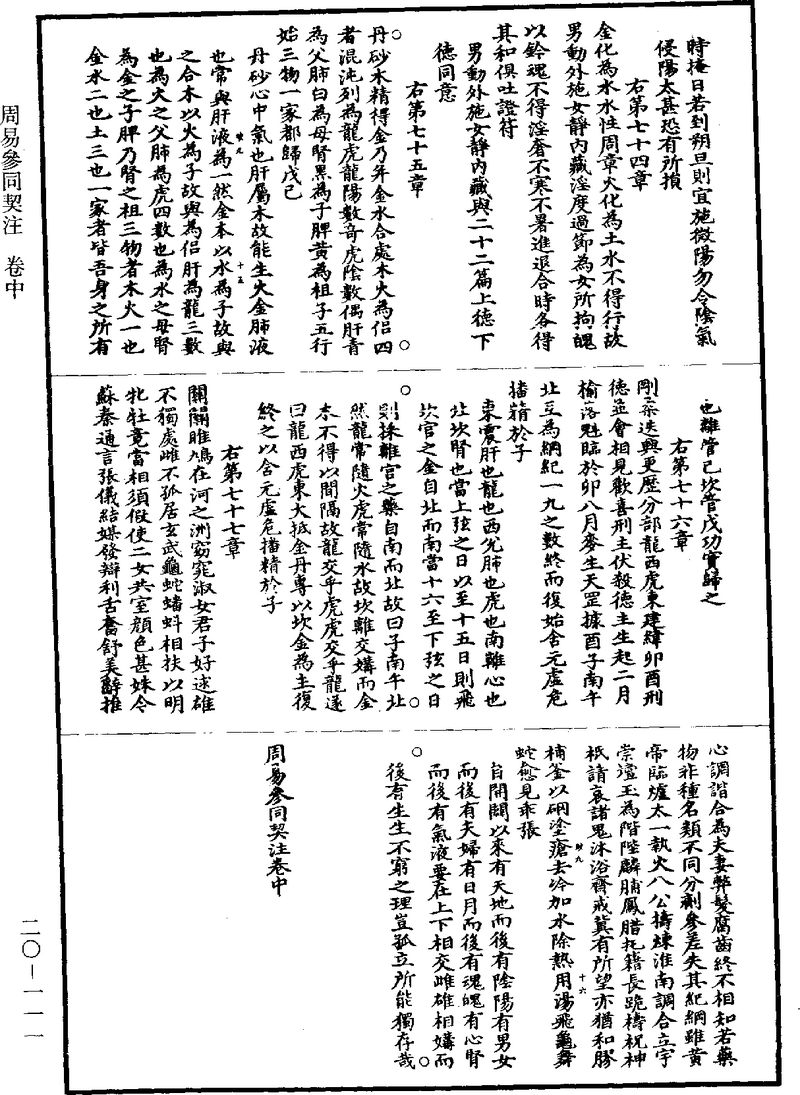 周易參同契注　卷中
二〇—一一一
時掩日若到朔旦則宜施微陽勿令陰氣
侵陽太甚恐有所損
右第七十四章
金化為水水性周章火化為土水不得行故
男動外施女靜內藏淫度過節為女所拘魄
以鈐魂不得淫奢不寒不暑進退合時各得
其和俱吐證符
男動外施女靜內藏與二十二篇上德下
德同意
右第七十五章
丹砂木精得金乃并金水合處木火為侶四
者混沌列為龍虎龍陽數奇虎陰數偶肝青
為父肺白為母腎黑為子脾黃為祖子五行
始三物一家都歸戊己
丹砂心中氣也肝屬木故能生火金肺液
也常與肝液為一然金本以水為子故與
之合木以火為子故與為侶肝為龍三數
也為火之父肺為虎四數也為水之母腎
為金之子脾乃腎之祖三物者木火一也
金水二也土三也一家者皆吾身之所有
也離管己坎管戊功實歸之
右第七十六章
剛柔迭興更歷分部龍西虎東建緯卯酉刑
德並會相見歡喜刑主伏殺德主生起二月
榆落魁臨於卯八月麥生天罡據酉子南午
北互為綱紀一九之數終而復始含元虛危
播精於子
東震肝也龍也西兌肺也虎也南離心也
北坎腎也當上弦之日以至十五日則飛
坎宮之金自北而南當十六至下弦之日
則採離宮之藥自南而北故曰子南午北
然龍常隨火虎常隨水故坎離交媾而金
木不得以間隔故龍交乎虎虎交乎龍遂
曰龍西虎東大抵金丹專以坎金為主復
終之以含元虛危播精於子
右第七十七章
關關雎鳩在河之洲窈窕淑女君子好逑雄
不獨處雌不孤居玄武龜蛇蟠蚪相扶以明
牝牡竟當相須假使二女共室顏色甚姝令
蘇秦通言張儀結媒發辯利舌奮舒美辭推
心調諧合為夫妻弊髮腐齒終不相知若藥
物非種名類不同分劑參差失其紀綱雖黃
帝臨爐太一執火八公擣煉淮南調合立宇
崇壇玉為階陛麟脯鳳腊把籍長跪禱祝神
祇請哀諸鬼沐浴齋戒冀有所望亦猶和膠
補釜以硇塗瘡去冷加水除熱用湯飛龜舞
蛇愈見乖張
自開闢以來有天地而後有陰陽有男女
而後有夫婦有日月而後有魂魄有心腎
而後有氣液要在上下相交雌雄相媾而
後有生生不窮之理豈孤立所能獨存哉
周易參同契注卷中